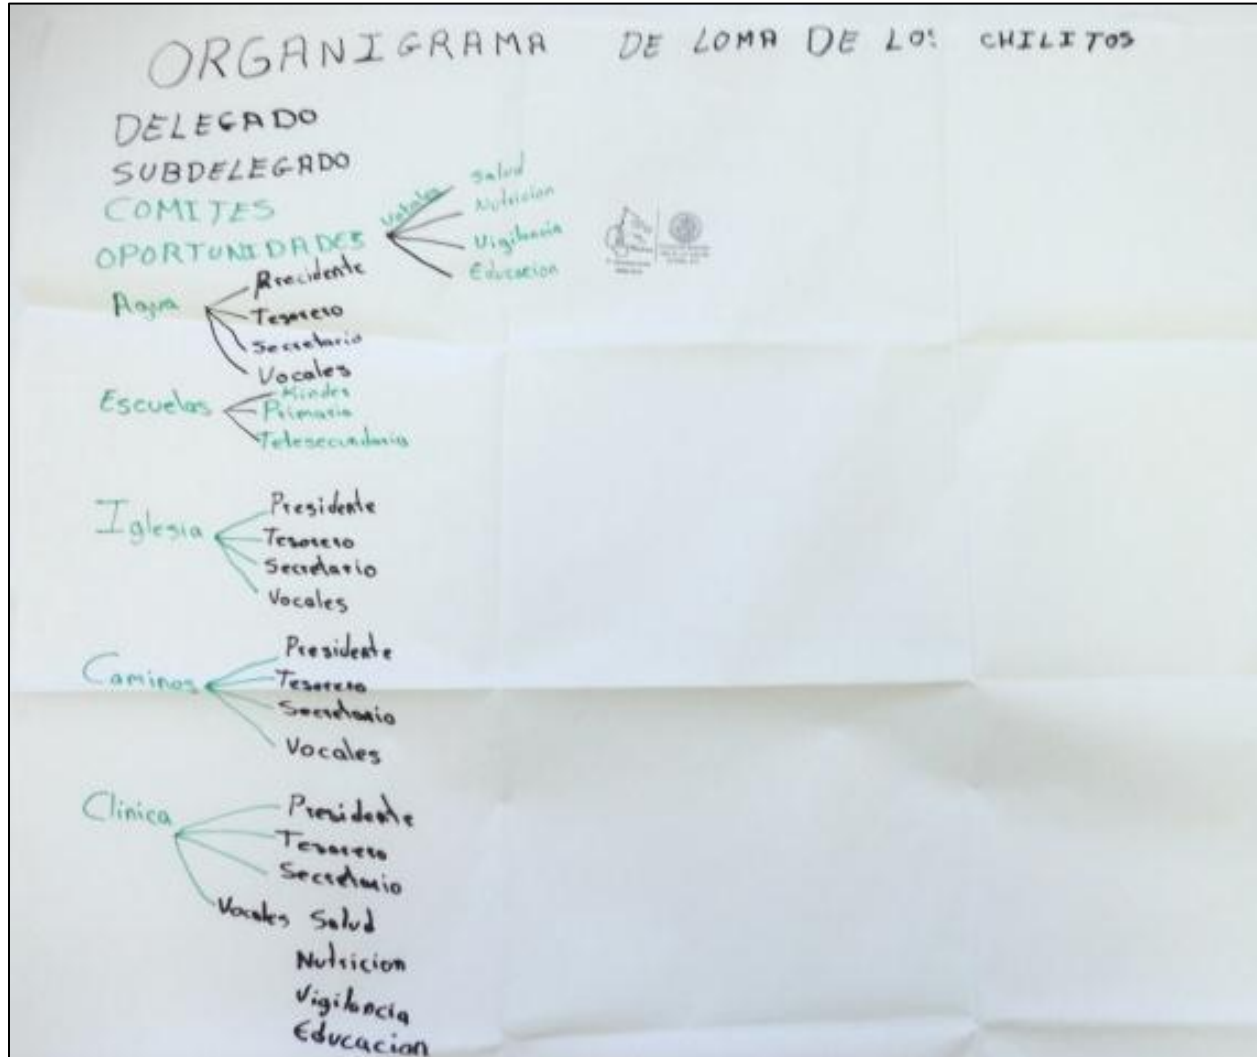 ORGANIGRAMA DE LOMA DE LOS CHILITOS
DELEGADO
SUBDELEGADO
COMITES
OPORTUNIDADES
Vocales
Salud
Nutricion
Vigilancia
Educacion
Agua
Precidente
Tesorero
Secretario
Vocales
Escuelas
Kinder
Primaria
Telesecundaria
Iglesia
Presidente
Tesorero
Secretario
Vocales
Caminos
Presidente
Tesorero
Secretario
Vocales
Clinica
Presidente
Tesorero
Secretario
Vocales Salud
Nutricion
Vigilancia
Educacion